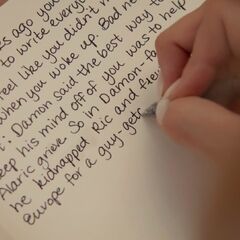 es ago you
to write everyt
feel like you didn't m
when you woke up. Bad ne
t: Damon said the best way to
eep his mind off of you was to help
Alaric grieve. So in Damon-fa
he kidnapped Ric and
europe for a guy-get